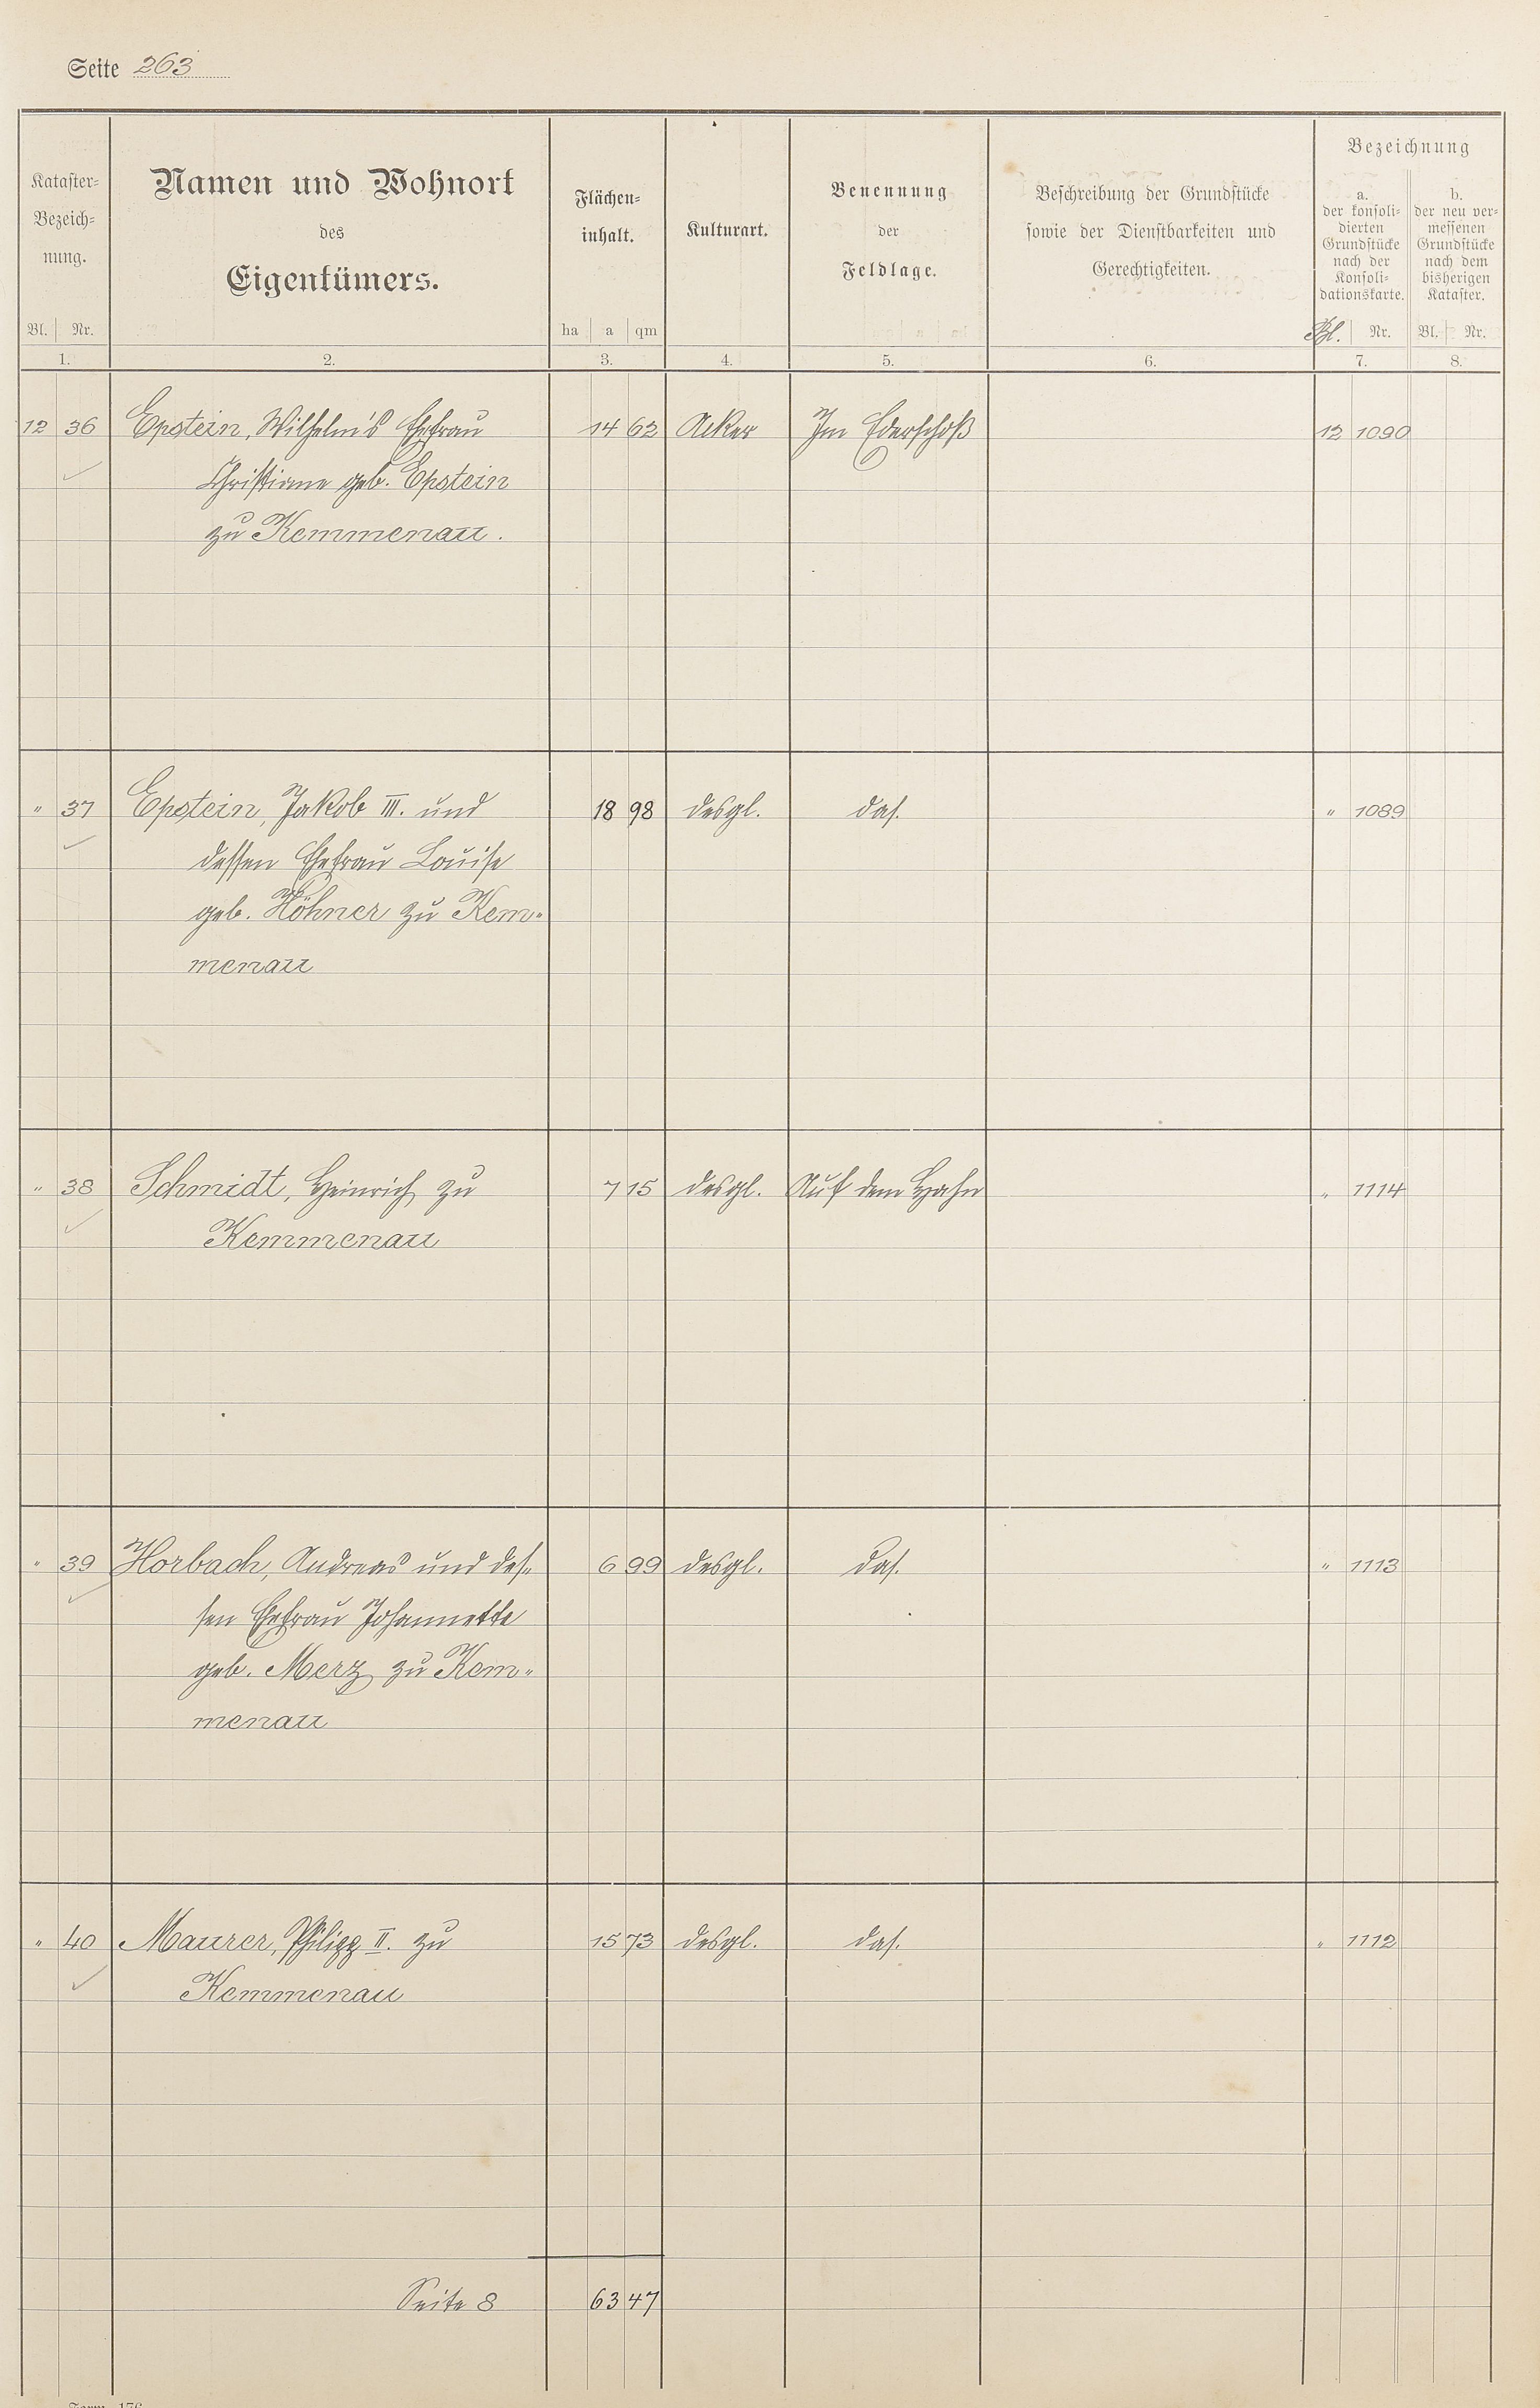 Seite 263
Kataster-
Bezeich-
nung.
Bl. Nr.
1.
Namen und Wohnort
des
Eigentümers.
2.
Flächen-
inhalt.
ha a qm
3.
Kulturart.
4.
Benennung
der
Feldlage.
5.
Beschreibung der Grundstücke
sowie der Dienstbarkeiten und
Gerechtigkeiten.
6.
Bezeichnung
a.
der konsoli-
dierten
Grundstücke
nach der
Konsoli-
dationskarte.
Bl. Nr.
7.
b.
der neu ver-
messenen
Grundstücke
nach dem
bisherigen
Kataster.
Bl. Nr.
8.
12 36 Epstein, Wilhelm's Ehefrau 14 62 Acker Im Ederschoß 12 1090
Christiane geb. Epstein
zu Kemmenau.
" 37 Epstein, Jakob III. und 18 98 desgl. das. " 1089
dessen Ehefrau Louise
geb. Höhner zu Kem-
menau
" 38 Schmidt, Heinrich zu 7 15 desgl. Auf dem Hahn " 1114
Kemmenau
" 39 Horbach, Andreas und des- 6 99 desgl. das. " 1113
sen Ehefrau Johannette
geb. Merz zu Kem-
menau
" 40 Maurer, Philipp II. zu 15 73 desgl. das. " 1112
Kemmenau
Seite 8 63 47